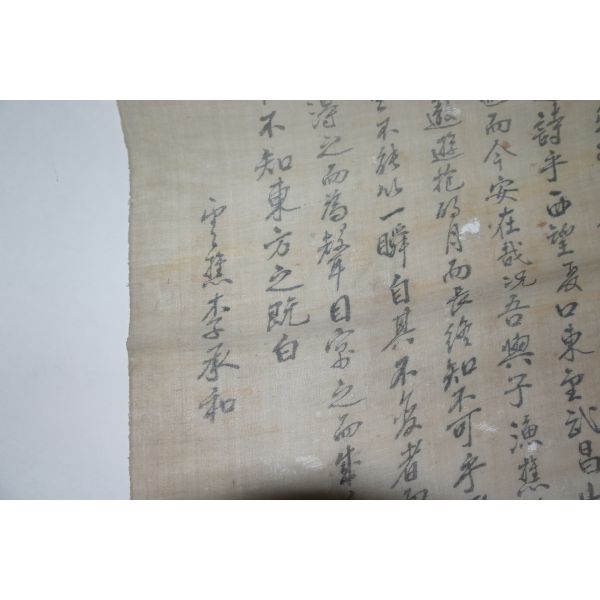 詩乎西望夏口東望武昌
而今安在哉况吾與子漁樵
遨遊抱明月而長終知不可乎
不能以一瞬自其不变者而
得之而為聲目寓之而成
不知東方之既白
雲樵李承和